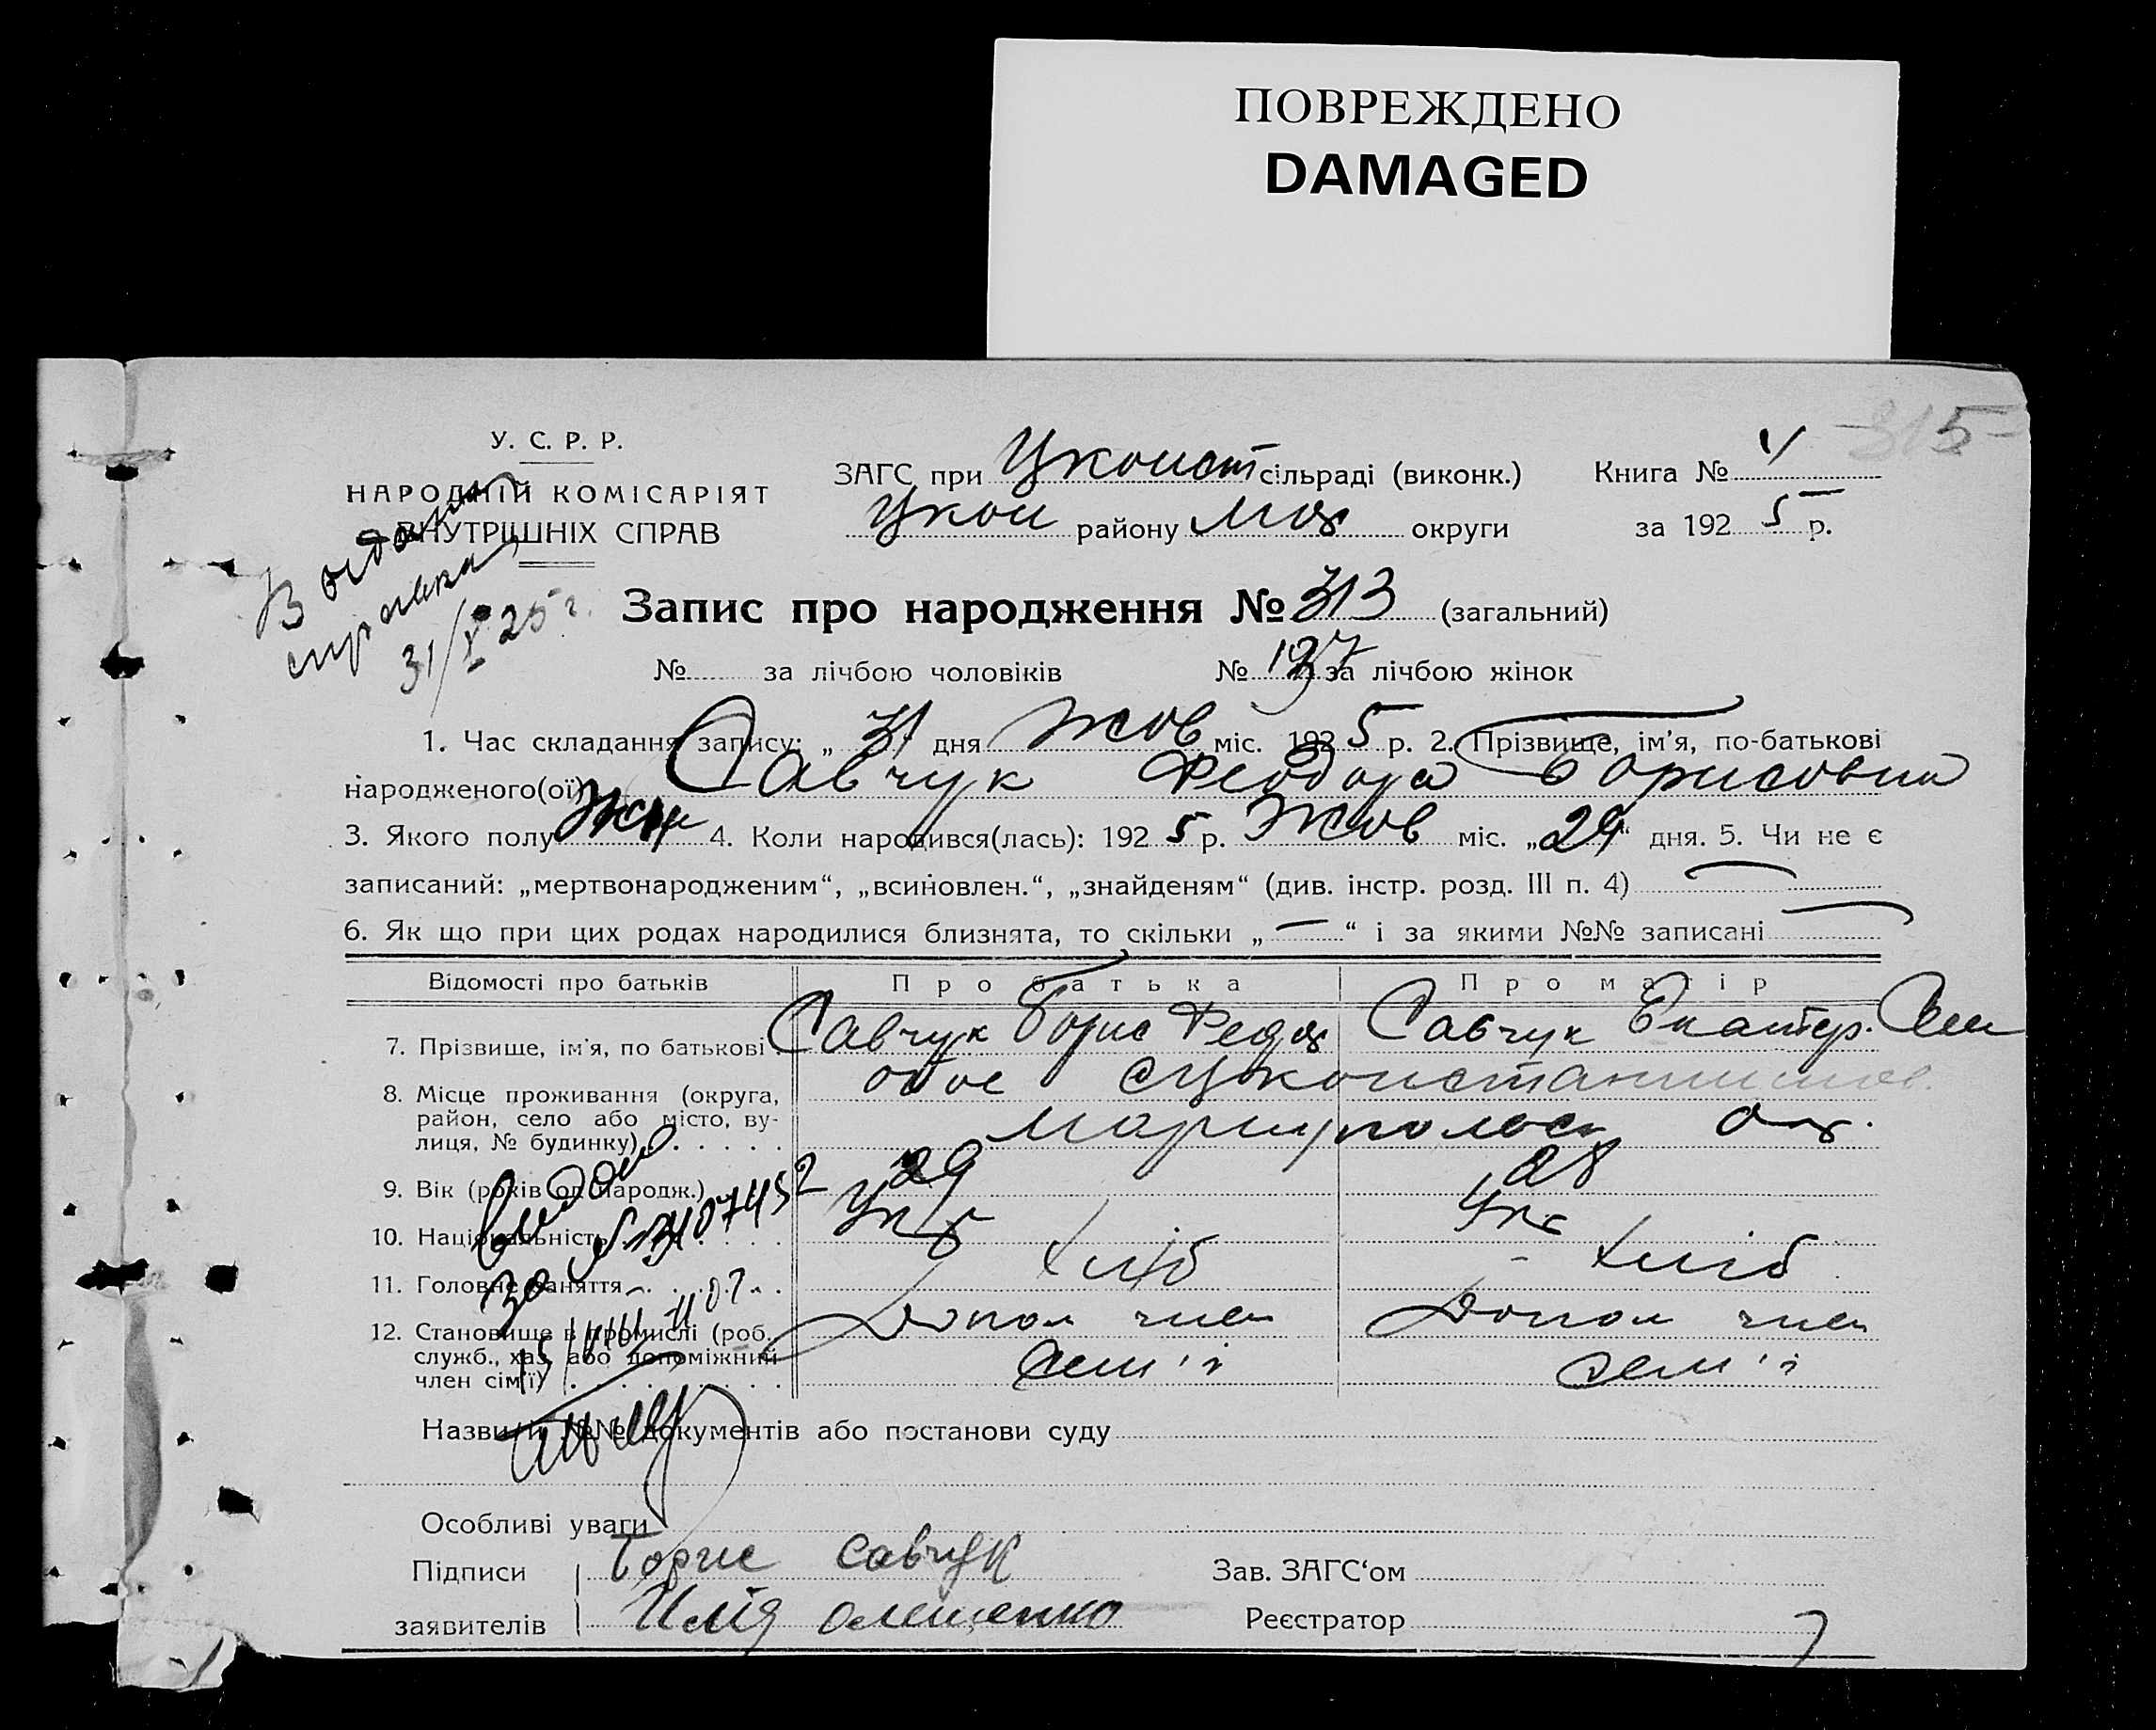 ПОВРЕЖДЕНО
DAMAGED
315
У. С. Р. Р.
НАРОДНІЙ КОМІСАРІЯТ
ВНУТРІШНІХ СПРАВ
ЗАГС при Цконст сільраді (виконк.) Книга №
Цкон району Мар округи за 1925 р.
Видана
справка
31/X 25 г.
Запис про народження № 313 (загальний)
№ за лічбою чоловіків № 127 за лічбою жінок
1. Час складання запису: „ 31 дня Жов міс. 1925 р. 2. Прізвище, ім'я, по-батькові
народженого(ої) Савчук Феодора Борисовна
3. Якого полу Жін 4. Коли народився(лась): 1925 р. Жов міс. „29“ дня. 5. Чи не є
записаний: „мертвонародженим“, „всиновлен.“, „знайденям“ (див. інстр. розд. III п. 4) —
6. Як що при цих родах народилися близнята, то скільки „—“ і за якими №№ записані —
Відомості про батьків Про батька Про матір
7. Прізвище, ім'я, по батькові Савчук Борис Федор Савчук Екатер. Сем
8. Місце проживання (округа, обое с Цконстантинов.
район, село або місто, ву-
лиця, № будинку) Мариупольск ок.
9. Вік (років од народж.) 29 28
10. Національність Укр Укр
11. Головне заняття Хліб Хліб
12. Становище в промислі (роб., Допом член Допом член
служб., хаз. або допоміжний
член сім'ї) сем'ї сем'ї
Назви й №№ документів або постанови суду
Особливі уваги
Підписи Борис Савчук Зав. ЗАГС'ом
заявителів Илія Олещенко Реєстратор